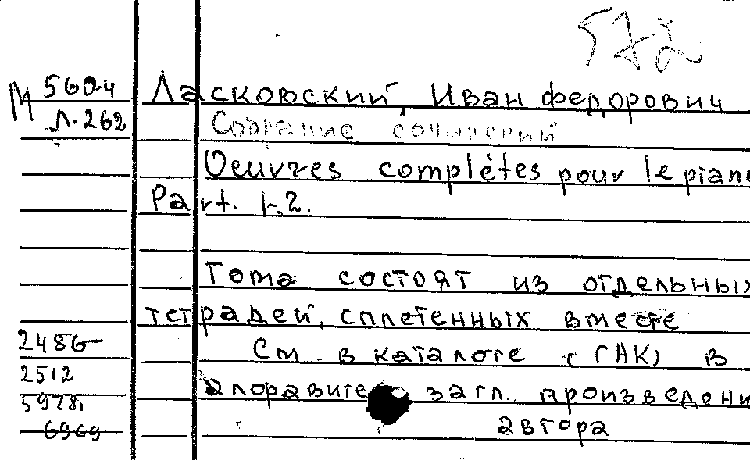 572
М 560-4
Л-262
Ласковский, Иван Федорович
Собрание сочинений
Oeuvres complètes pour le piano
Part. 1-2.
Тома состоят из отдельных
тетрадей, сплетенных вместе
См. в каталоге (ГАК) в
загл. произведени
автора
2486
2512
5978
6969